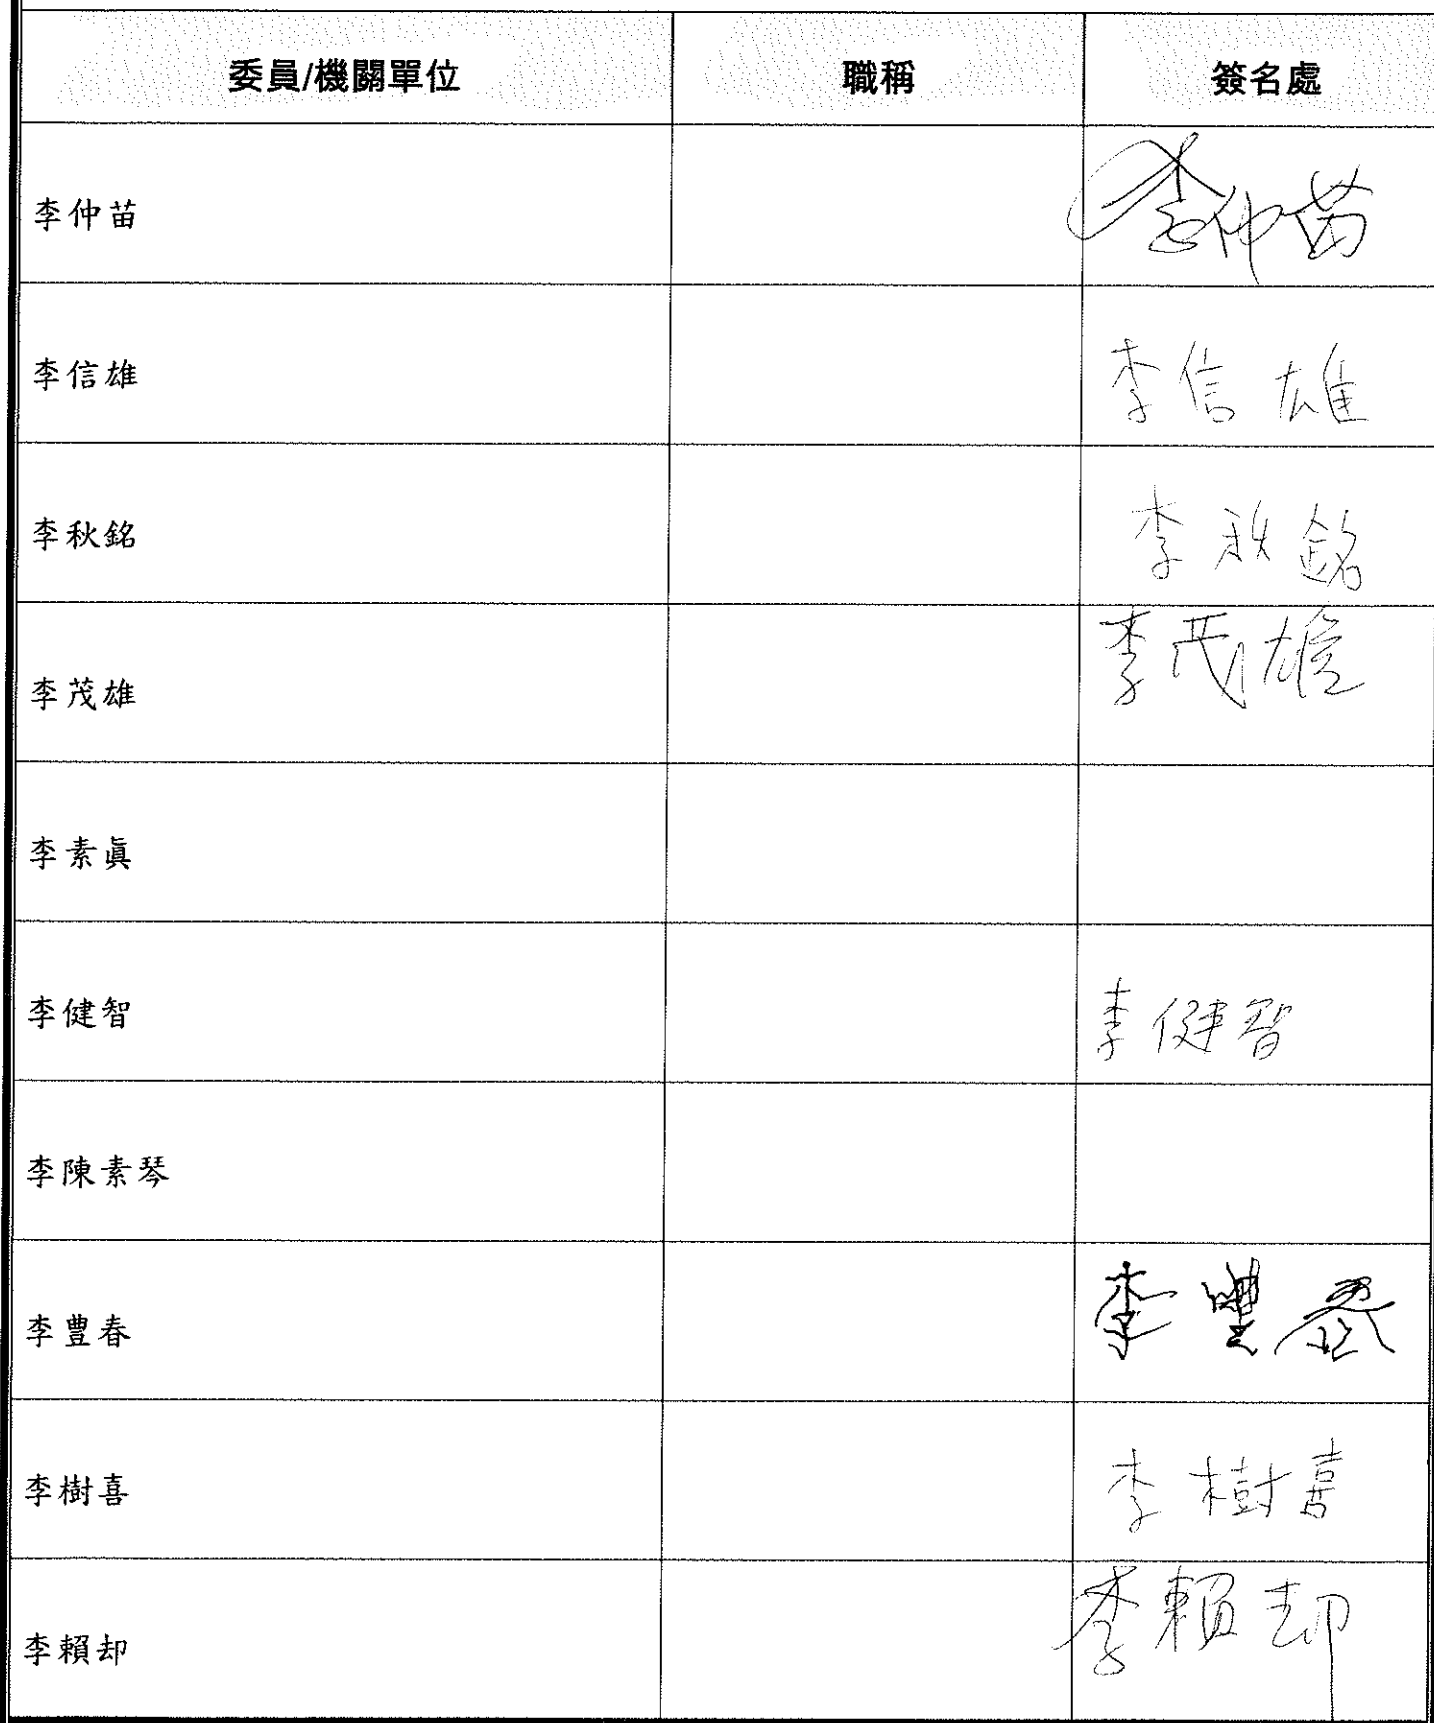 委員/機關單位 職稱 簽名處
李仲苗 李仲苗
李信雄 李信雄
李秋銘 李秋銘
李茂雄 李茂雄
李素眞
李健智 李健智
李陳素琴
李豊春 李豐春
李樹喜 李樹喜
李賴却 李賴却